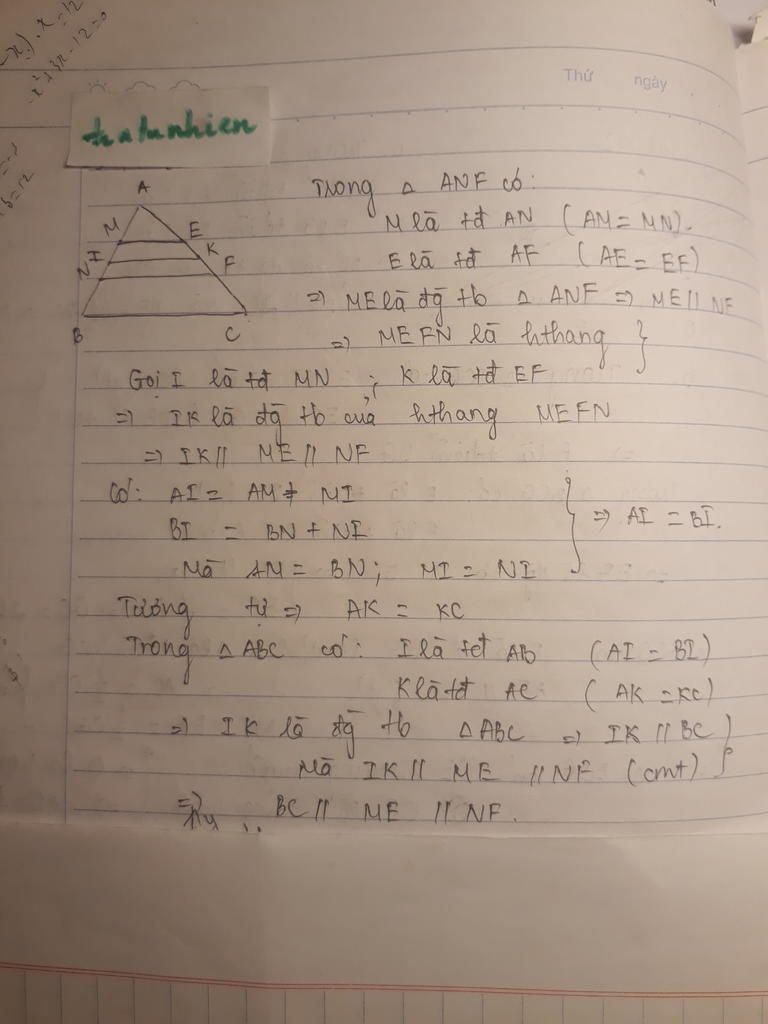 -x) . x = 12
-x² + 3x - 12 = 0
Thứ ngày
hatunhien
A
M E
I K
N F
B C
Trong △ ANF có:
M là tđ AN (AM = MN).
E là tđ AF (AE = EF)
=> ME là đg tb △ ANF => ME // NF
=> MEFN là hthang }
Gọi I là tđ MN ; K là tđ EF
=> IK là đg tb của hthang MEFN
=> IK // ME // NF
Có: AI = AM + MI
BI = BN + NI } => AI = BI.
Mà AM = BN; MI = NI
Tương tự => AK = KC
Trong △ ABC có: I là tđ AB (AI = BI)
K là tđ AC (AK = KC)
=> IK là đg tb △ABC => IK // BC }
Mà IK // ME // NF (cmt)
=> BC // ME // NF.